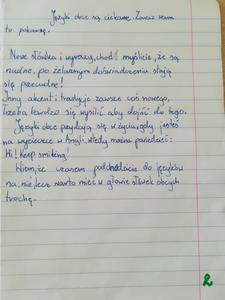 Języki obce są ciekawe. Zaraz wam
to pokażę.
Nowe słówka i wyrazy, choć myślicie, że są
nudne, po żelaznym doświadczeniu stają
się przecudne!
Inny akcent i tradycje zawsze coś nowego,
trzeba bardzo się wysilić aby dojść do tego.
Języki obce przydają się w życiu, gdy jesteś
na wycieczce w Anglii, wtedy można powiedzieć:
Hi! Keep smiling!
Wiem, że czasem podchodzicie do języków
na nie, lecz warto mieć w głowie słówek obcych
trochę.
2